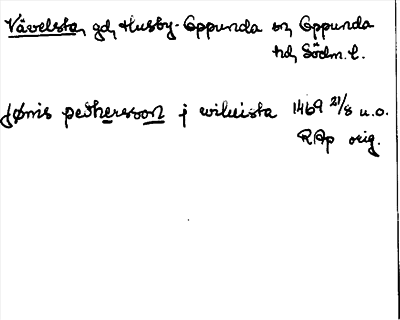 Vävelsta, gd, Husby-Oppunda sn, Oppunda
hd, Södm. l.
Jønis pedhersson j wiluista 1469 21/8 u.o.
RAp orig.